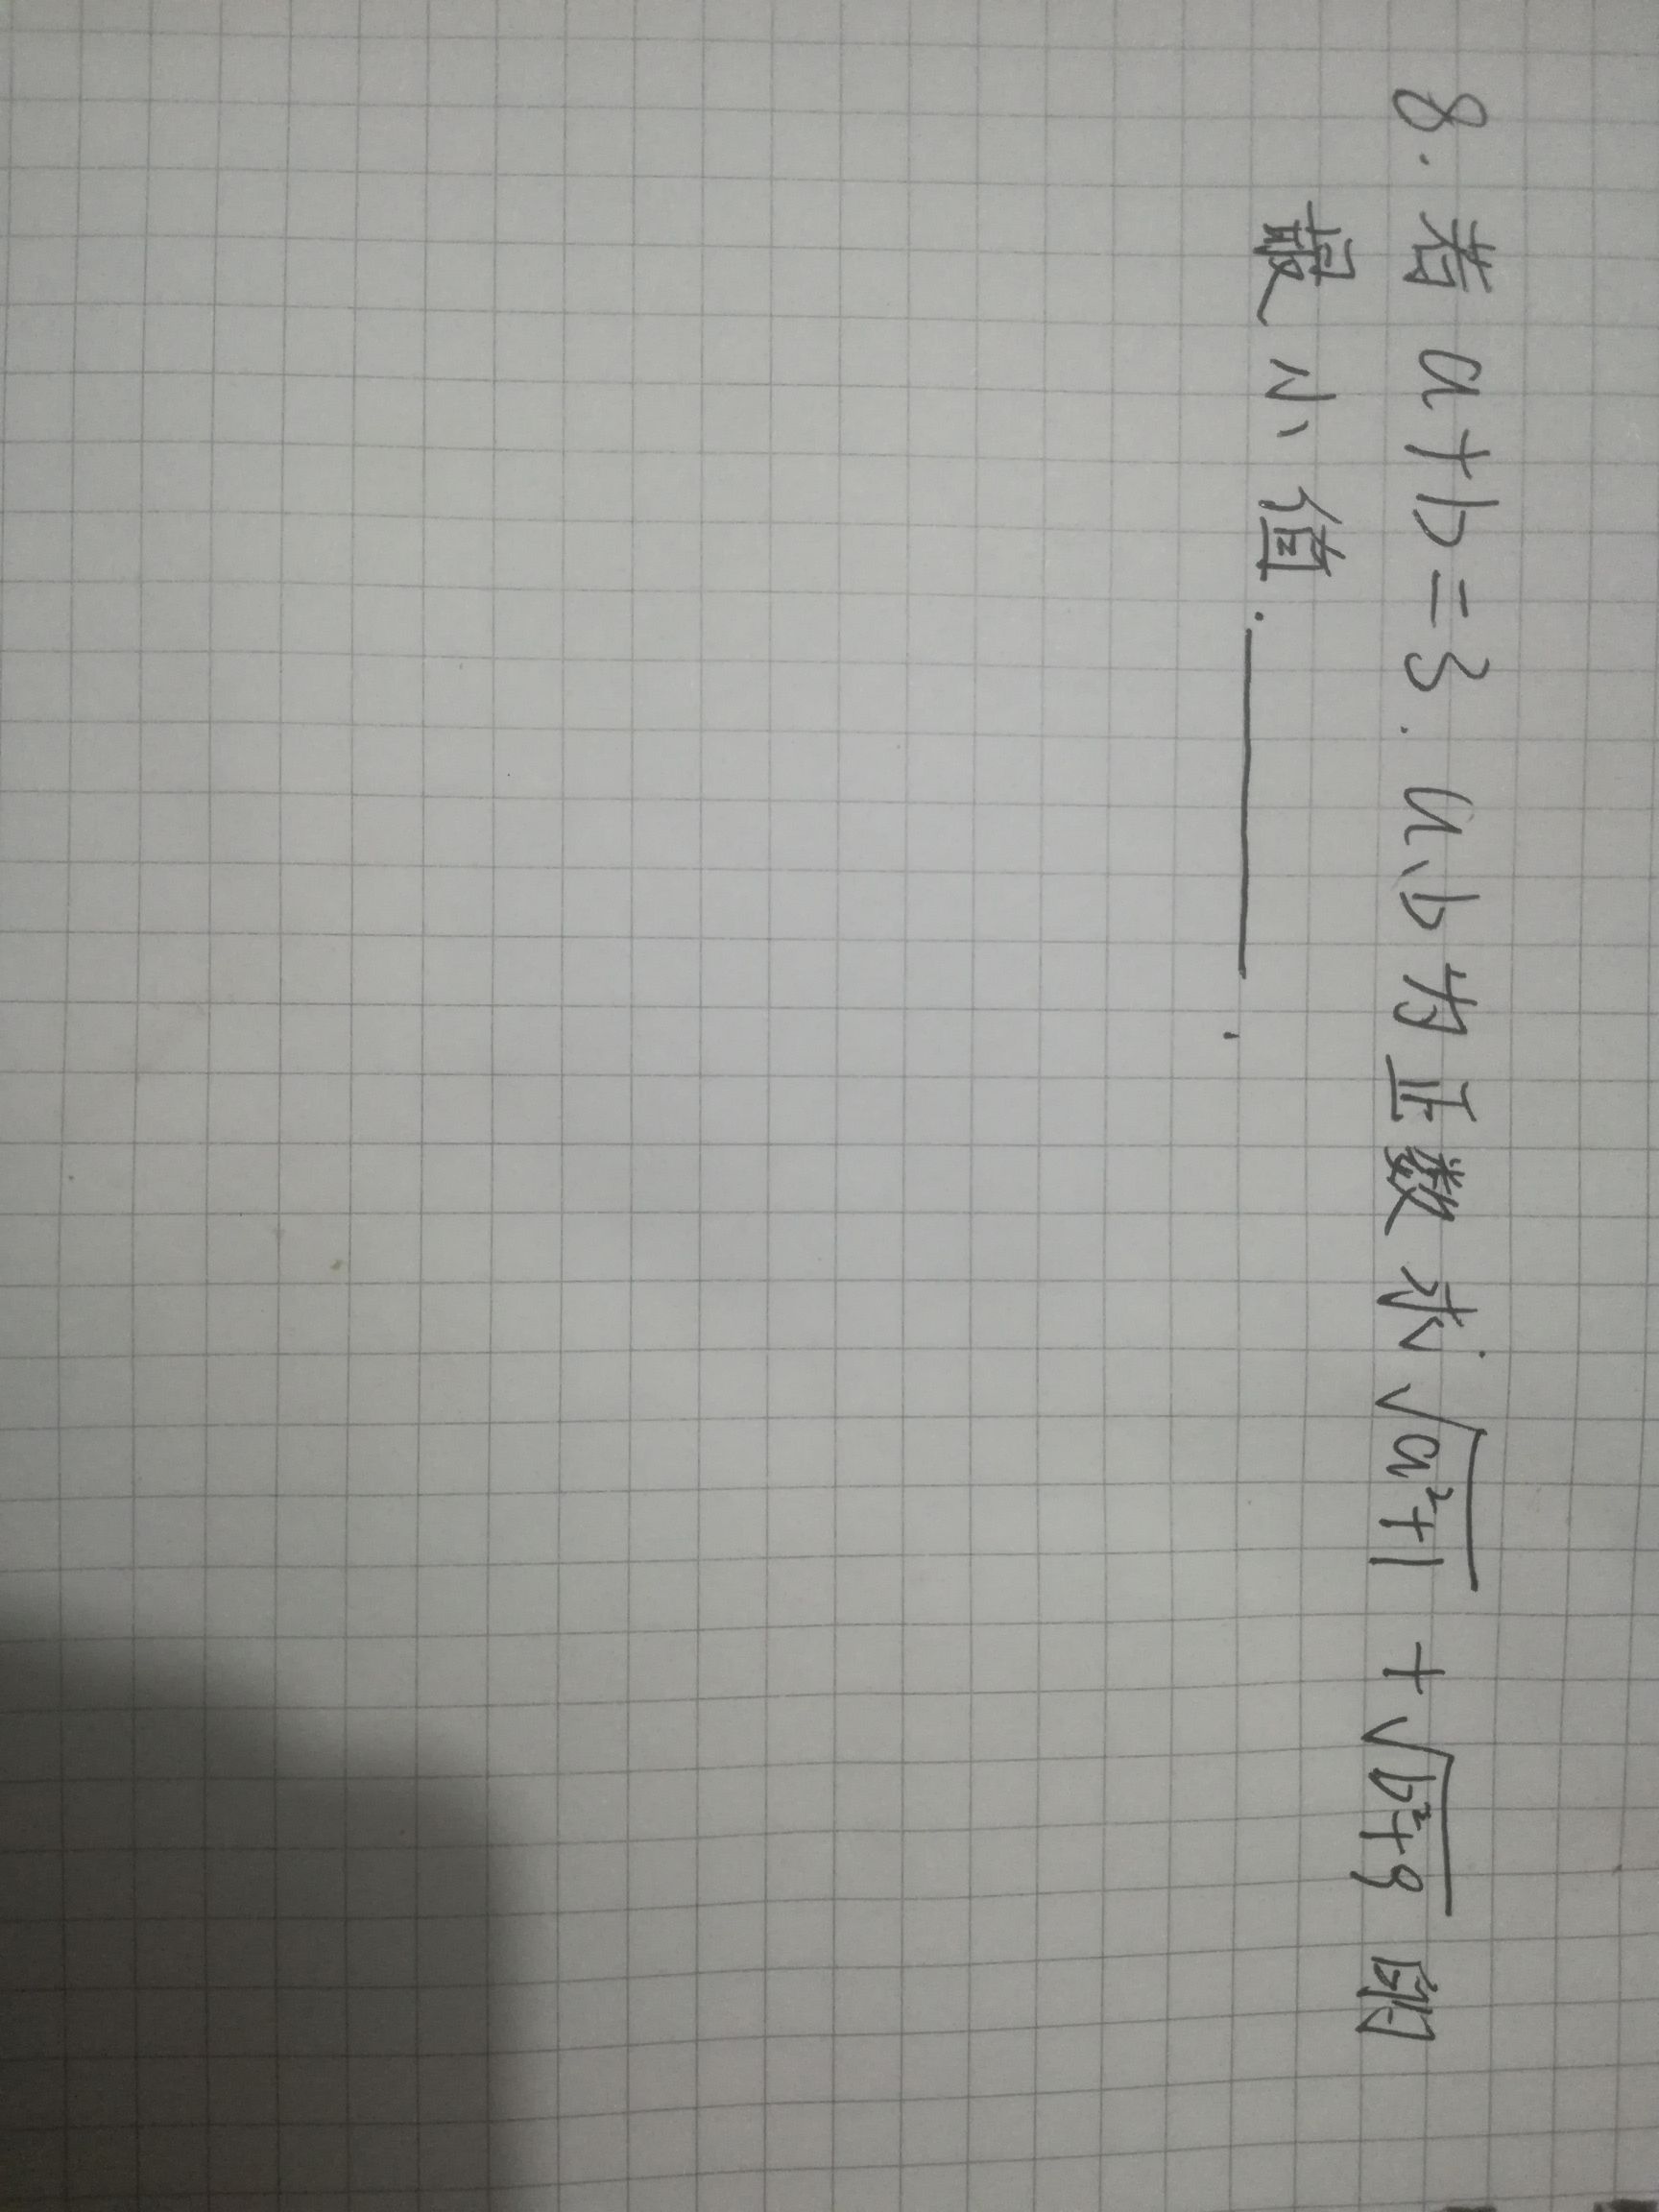 8. 若 a+b=3. a、b为正数 求 √(a²+1) + √(b²+9) 的
最小值. ______.